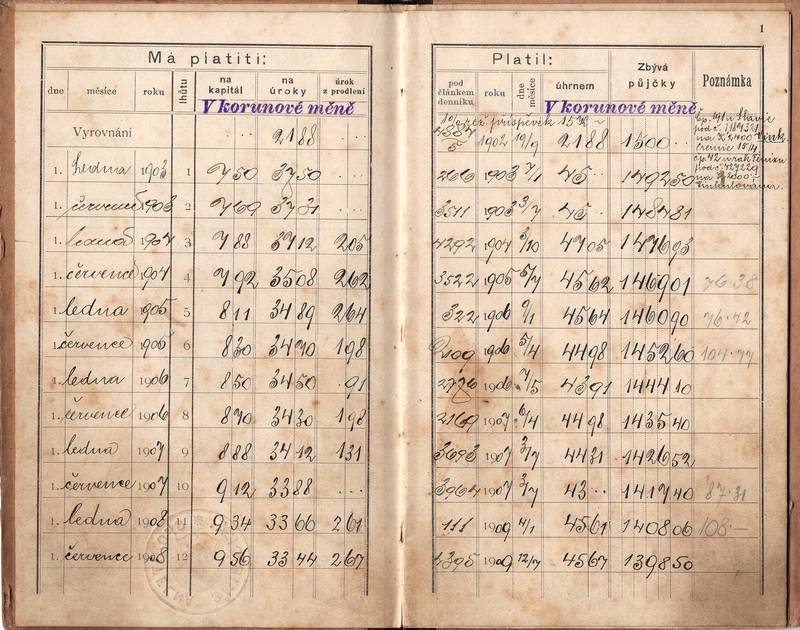 1
Má platiti:
dne měsíce roku lhůtu na kapitál na úroky úrok z prodlení
V korunové měně
Vyrovnání 21 88
1. ledna 1903 1 7 50 37 50
1. července 1903 2 7 69 37 31
1. ledna 1904 3 7 88 37 12 2 05
1. července 1904 4 7 92 35 08 2 62
1. ledna 1905 5 8 11 34 89 2 64
1. července 1905 6 8 30 34 70 1 98
1. ledna 1906 7 8 50 34 50 . 91
1. července 1906 8 8 70 34 30 1 98
1. ledna 1907 9 8 88 34 12 1 31
1. července 1907 10 9 12 33 88
1. ledna 1908 11 9 34 33 66 2 61
1. července 1908 12 9 56 33 44 2 67
Platil:
pod článkem denníku roku dne měsíce úhrnem Zbývá půjčky Poznámka
V korunové měně
příspěvek 15 K
1902 19/9 21 88 1500
266 1903 7/1 45 1492 50
3511 1903 3/7 45 1484 81
4292 1904 3/10 47 05 1476 93
3522 1905 5/7 45 62 1469 01 76·38
322 1906 9/1 45 64 1460 90 76·42
2109 1906 5/4 44 98 1452 60 104·77
2786 1906 7/5 43 91 1444 10
2169 1907 6/4 44 98 1435 40
3693 1907 3/7 44 31 1426 52
3964 1907 3/7 43 1417 40 87·31
111 1909 4/1 45 61 1408 06 108·—
4395 1909 12/7 45 67 1398 50